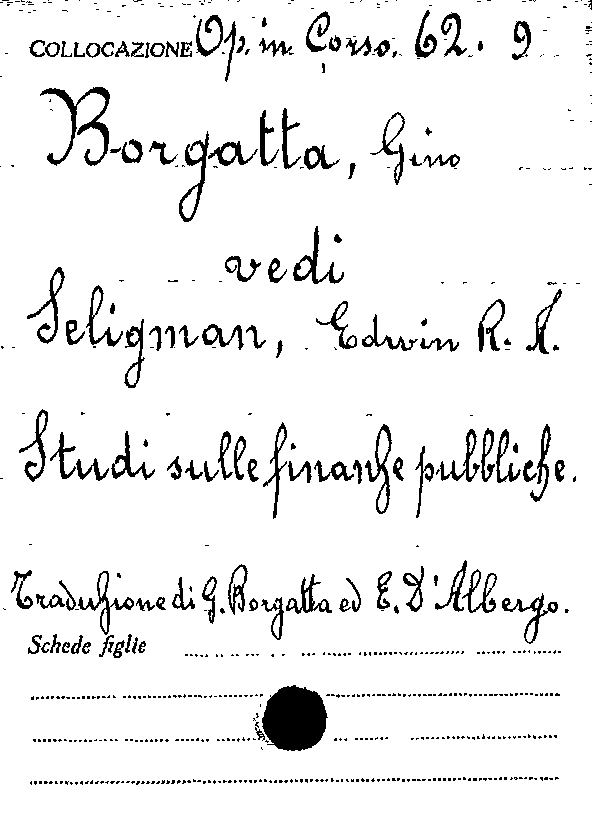 COLLOCAZIONE Op. in Corso. 62. 9
Borgatta, Gino
vedi
Seligman, Edwin R. A.
Studi sulle finanze pubbliche.
Traduzione di G. Borgatta ed E. D'Albergo.
Schede figlie